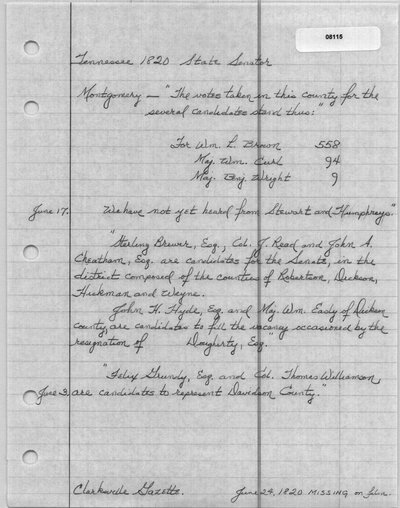 08115
Tennessee 1820 State Senator
Montgomery — "The votes taken in this county for the
several candidates stand thus:"
For Wm. L. Brown 558
Maj. Wm. Curl 94
Maj. Benj. Wright 9
June 17. We have not yet heard from Stewart and Humphreys."
"Sterling Brewer, Esq., Col. J. Read and John A.
Cheatham, Esq. are candidates for the Senate, in the
district composed of the counties of Robertson, Dickson,
Hickman and Wayne.
John H. Hyde, Esq. and Maj. Wm. Eady of Dickson
county, are candidates to fill the vacancy occasioned by the
resignation of Dougherty, Esq."
"Felix Grundy, Esq. and Col. Thomas Williamson,
June 3, are candidates to represent Davidson County."
Clarksville Gazette. June 24, 1820 MISSING on film.